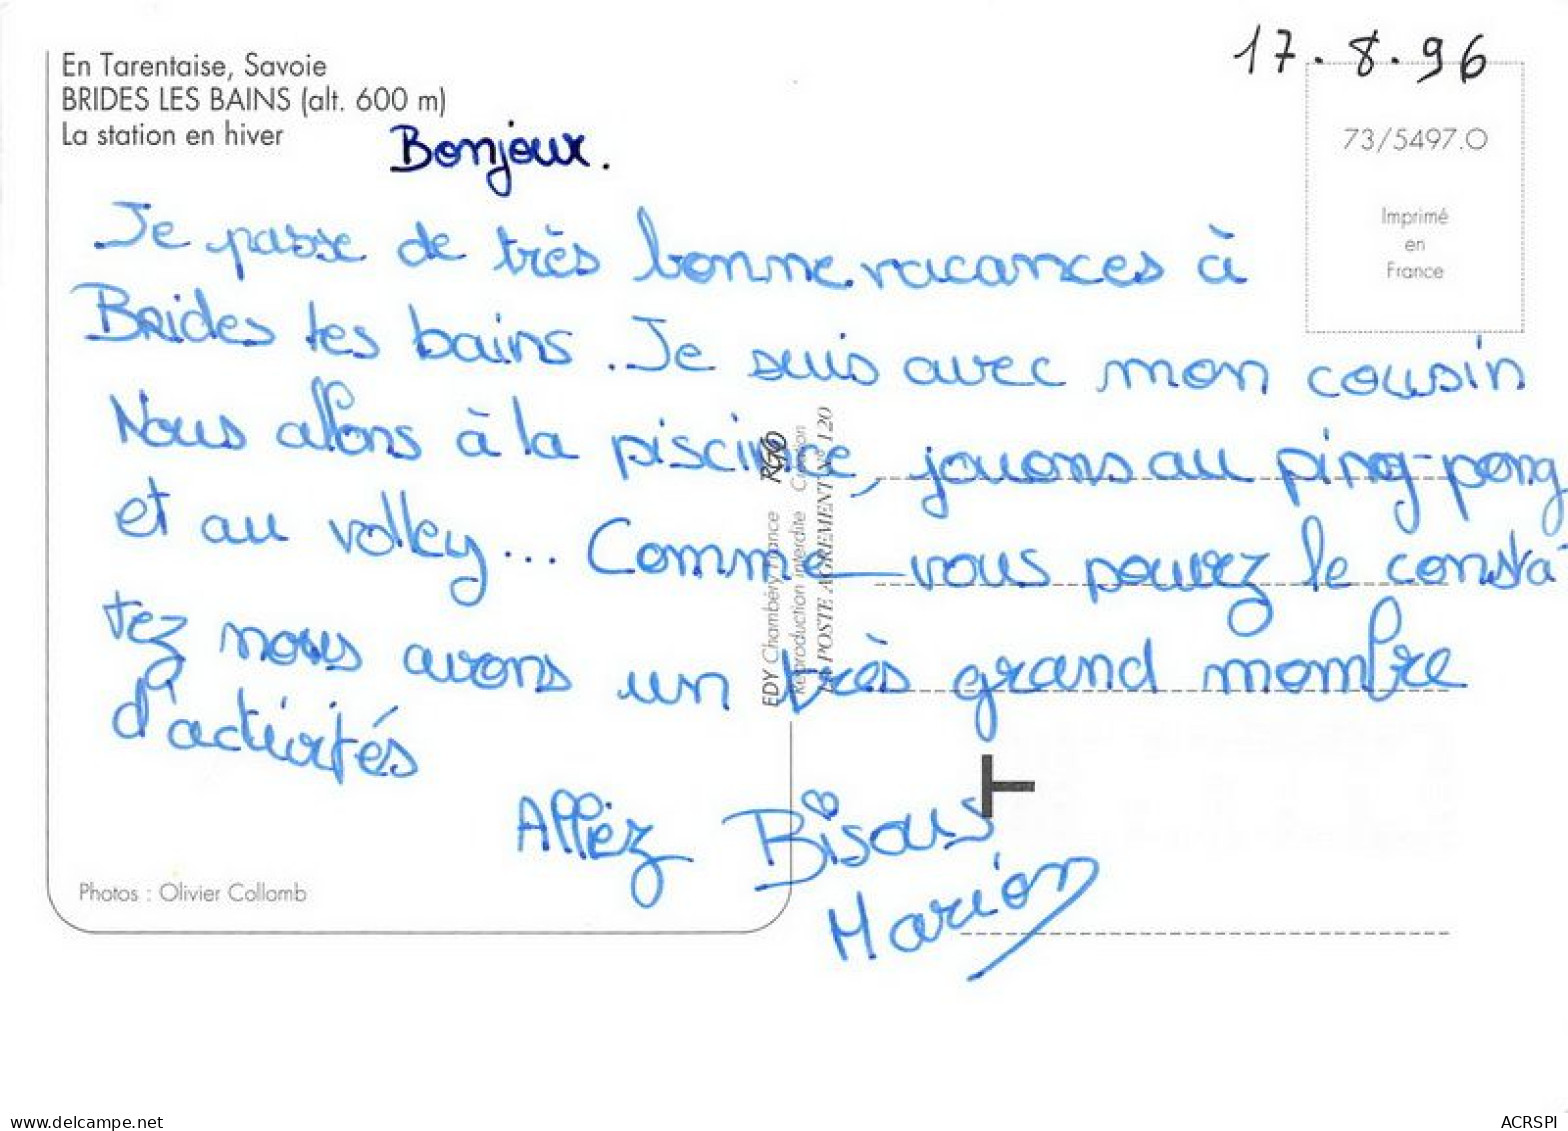 17.8.96
En Tarentaise, Savoie
BRIDES LES BAINS (alt. 600 m)
La station en hiver
73/5497.O
Imprimé
en
France
Bonjour.
Je passe de très bonne vacances à
Brides les bains. Je suis avec mon cousin
Nous allons à la piscine, jouons au ping-pong
et au volley... Comme vous pouvez le consta-
tez nous avons un très grand nombre
d'activités
Allez Bisous
Marion
EDY Chambéry France
Reproduction interdite
LA POSTE AGREMENT N° 120
Photos : Olivier Collomb
www.delcampe.net
ACRSPI